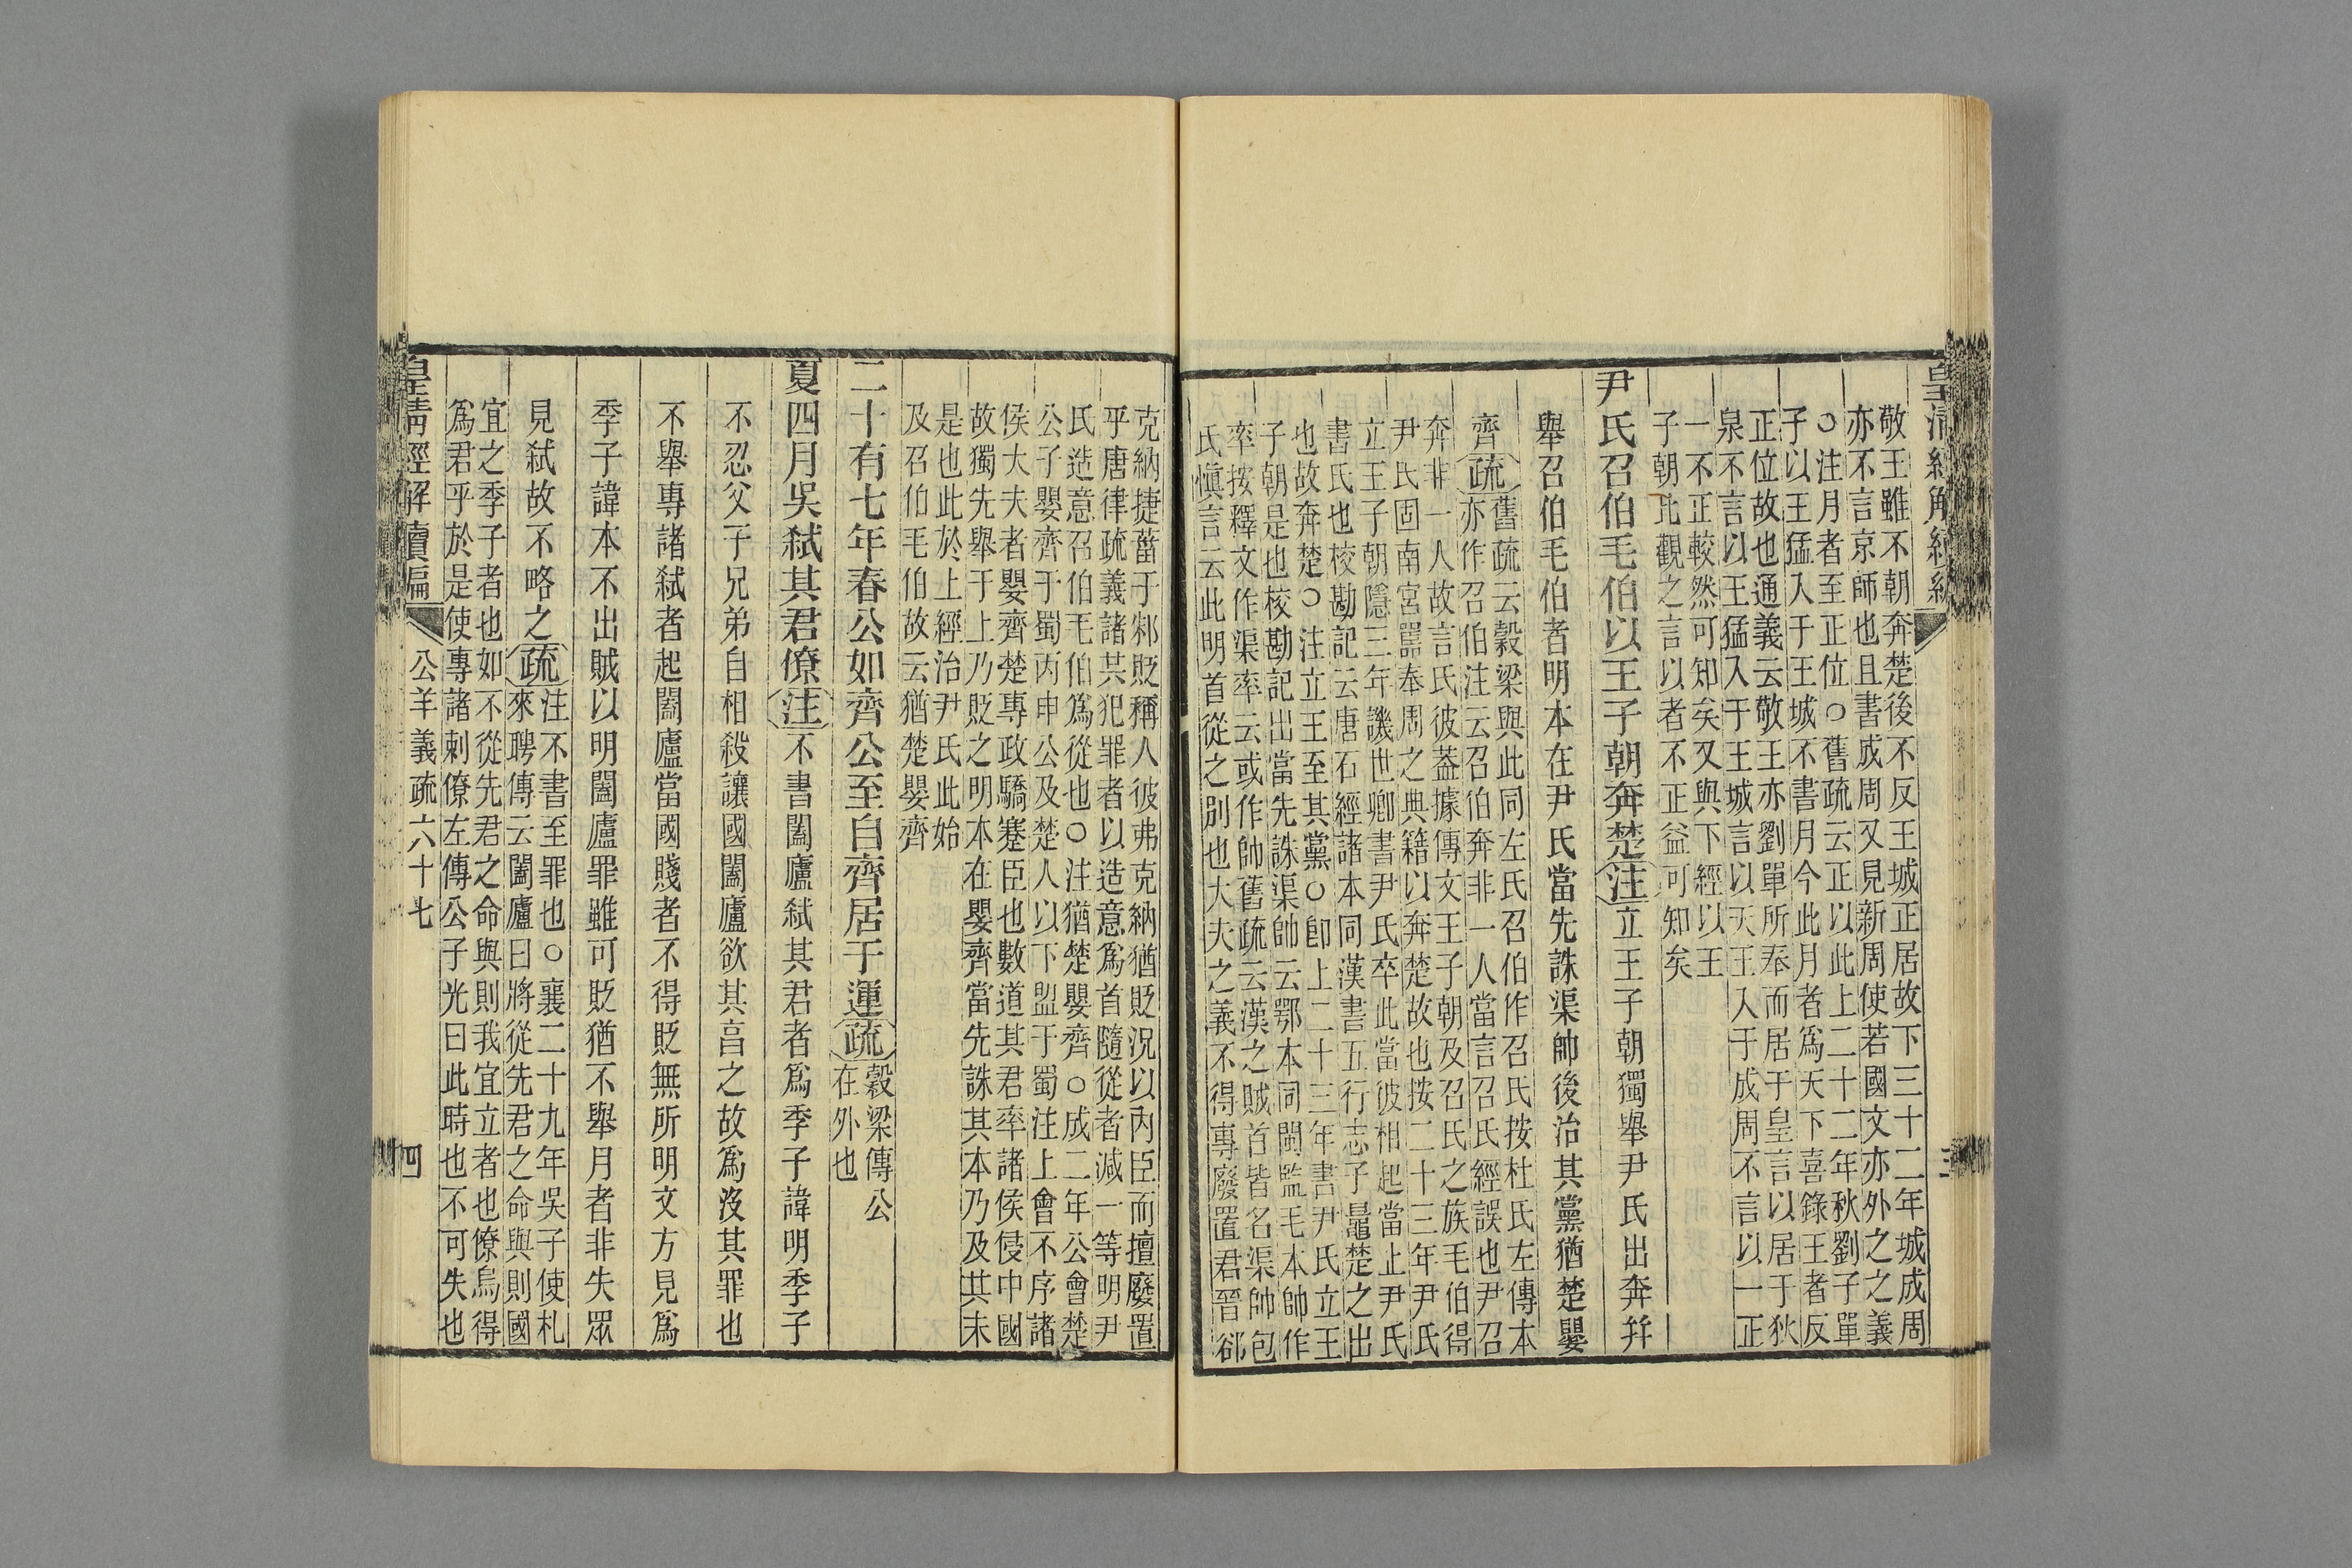 敬王雖不朝奔楚後不反王城正居故下三十二年城成周
亦不言京師也且書成周又見新周使若國文亦外之之義
○注月者至正位○舊疏云正以此上二十二年秋劉子單
子以王猛入于王城不書月今此月者爲天下喜錄王者反
正位故也通義云敬王亦劉單所奉而居于皇言以居于狄
泉不言以王猛入于王城言以天王入于成周不言以一正
一不正較然可知矣又與下經以王
子朝比觀之言以者不正益可知矣
尹氏召伯毛伯以王子朝奔楚注立王子朝獨舉尹氏出奔幷
舉召伯毛伯者明本在尹氏當先誅渠帥後治其黨猶楚嬰
齊疏舊疏云穀梁與此同左氏召伯作召氏按杜氏左傳本
亦作召伯注云召伯奔非一人當言召氏經誤也尹召
奔非一人故言氏彼葢據傳文王子朝及召氏之族毛伯得
尹氏固南宮嚚奉周之典籍以奔楚故也按二十三年尹氏
立王子朝隱三年譏世卿書尹氏卒此當彼相起當止尹氏
書氏也校勘記云唐石經諸本同漢書五行志子鼂楚之出
也故奔楚○注立王至其黨○卽上二十三年書尹氏立王
子朝是也校勘記出當先誅渠帥云鄂本同閩監毛本帥作
率按釋文作渠率云或作帥舊疏云漢之賊首皆名渠帥包
氏愼言云此明首從之別也大夫之義不得專廢置君晉郤
皇清經解續編
三
克納捷菑于邾貶稱人彼弗克納猶貶況以內臣而擅廢置
乎唐律疏義諸共犯罪者以造意爲首隨從者減一等明尹
氏造意召伯毛伯爲從也○注猶楚嬰齊○成二年公會楚
公子嬰齊于蜀丙申公及楚人以下盟于蜀注上會不序諸
侯大夫者嬰齊楚專政驕蹇臣也數道其君率諸侯侵中國
故獨先舉于上乃貶之明本在嬰齊當先誅其本乃及其末
是也此於上經治尹氏此始
及召伯毛伯故云猶楚嬰齊
二十有七年春公如齊公至自齊居于運疏穀梁傳公
在外也
夏四月吳弑其君僚注不書闔廬弑其君者爲季子諱明季子
不忍父子兄弟自相殺讓國闔廬欲其亯之故爲沒其罪也
不舉專諸弑者起闔廬當國賤者不得貶無所明文方見爲
季子諱本不出賊以明闔廬罪雖可貶猶不舉月者非失眾
見弑故不略之疏注不書至罪也○襄二十九年吳子使札
來聘傳云闔廬曰將從先君之命與則國
宜之季子者也如不從先君之命與則我宜立者也僚烏得
爲君乎於是使專諸刺僚左傳公子光曰此時也不可失也
皇清經解續編
公羊義疏六十七
四